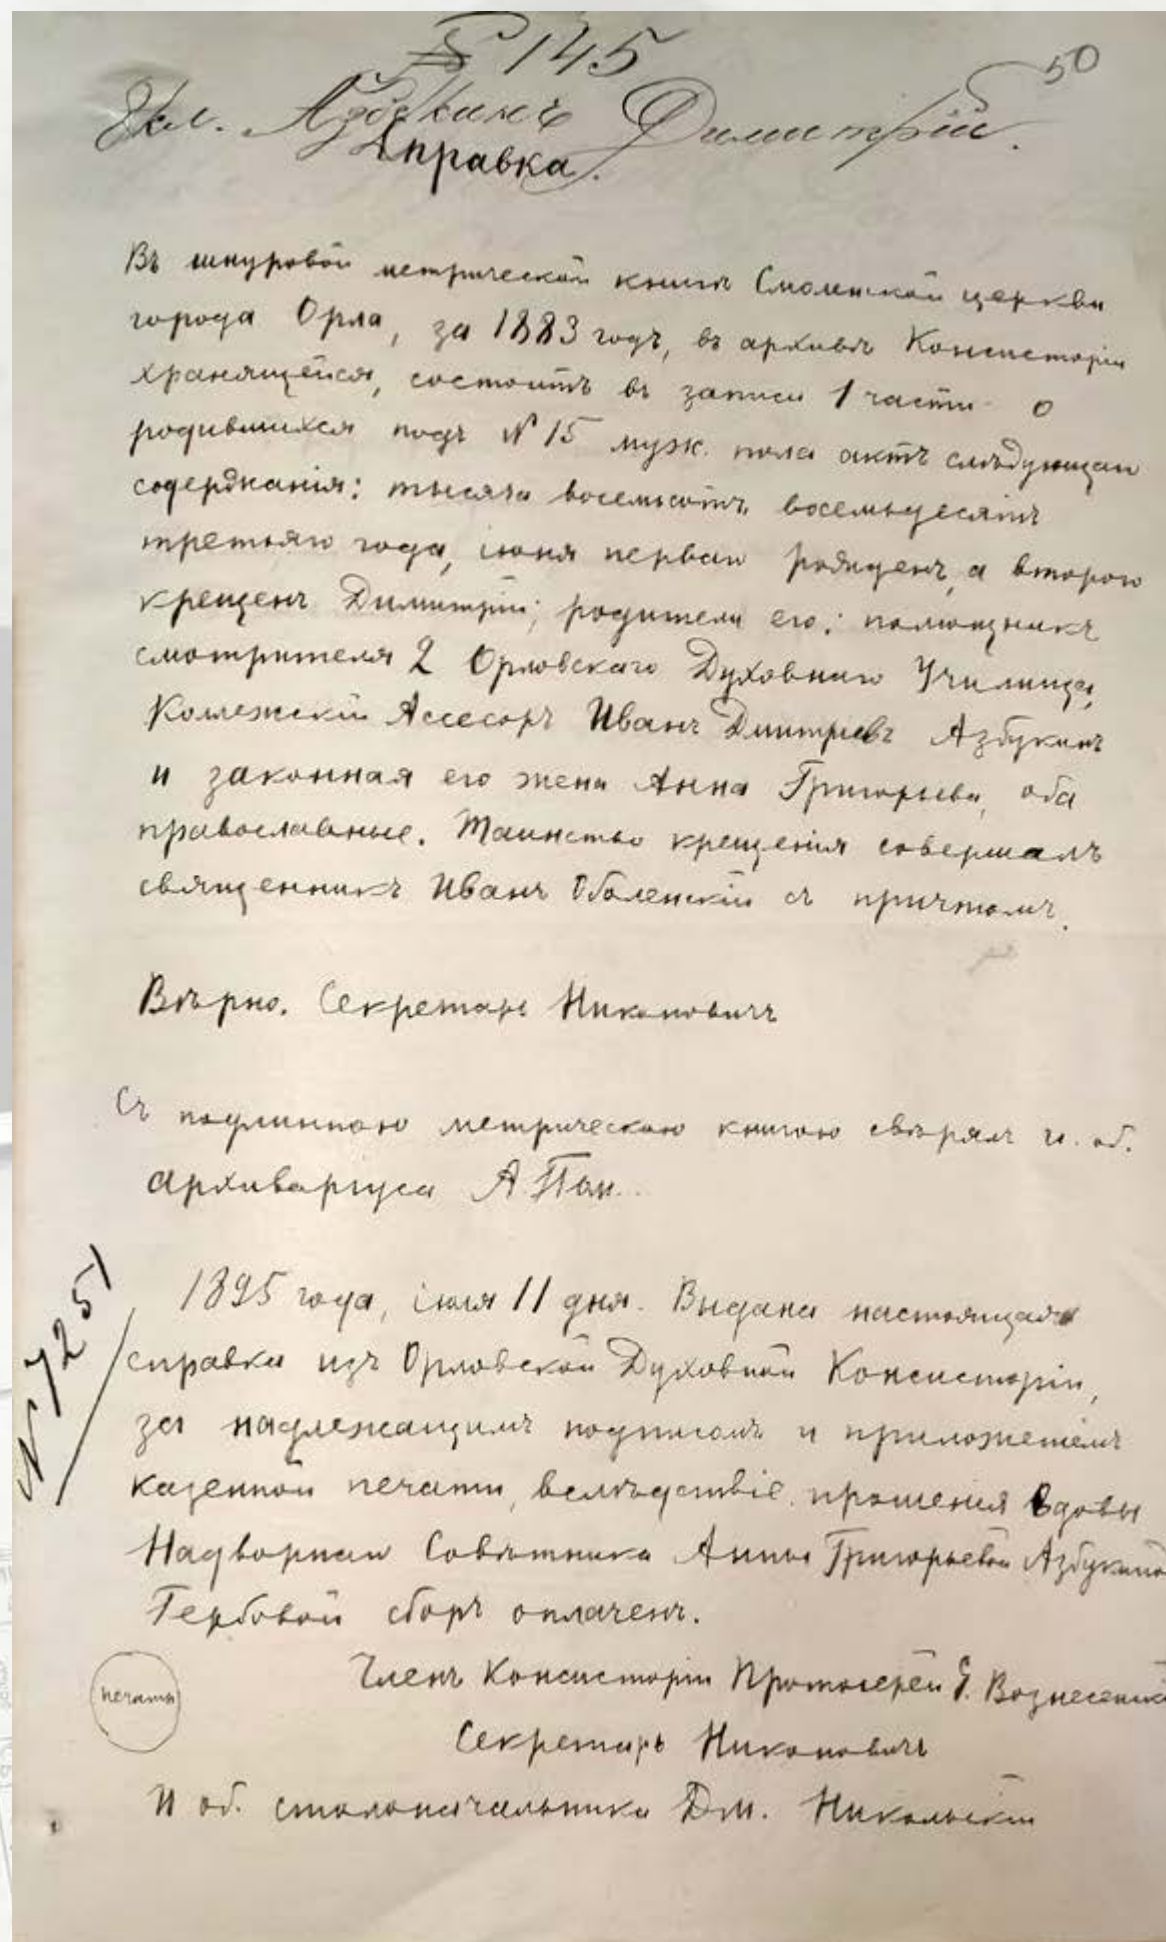 № 145
50
Экл. Азбукинъ Димитрій.
Справка.
Въ шнуровой метрической книгѣ Смоленской церкви
города Орла, за 1883 годъ, въ архивѣ Консисторіи
хранящейся, состоитъ въ записи 1 части о
родившихся подъ № 15 муж. пола актъ слѣдующаго
содержанія: тысяча восемьсотъ восемьдесятъ
третьяго года, іюня перваго рожденъ, а второго
крещенъ Димитрій; родители его: помощникъ
смотрителя 2 Орловскаго Духовнаго Училища,
Коллежскій Ассесоръ Иванъ Дмитріевъ Азбукинъ
и законная его жена Анна Григорьева, оба
православные. Таинство крещенія совершалъ
священникъ Иванъ Оболенскій съ причтомъ.
Вѣрно. Секретарь Никоновичъ
Съ подлинною метрическою книгою свѣрялъ и. об.
архиваріуса А. Пан..
№ 7251
1895 года, іюля 11 дня. Выдана настоящая
справка изъ Орловской Духовной Консисторіи,
за надлежащимъ подписомъ и приложеніемъ
казенной печати, вслѣдствіе прошенія вдовы
Надворнаго Совѣтника Анны Григорьевой Азбукиной
Гербовой сборъ оплаченъ.
Членъ Консисторіи Протоіерей Вознесенскій
печать
Секретарь Никоновичъ
И об. столоначальника Дм. Никольскій